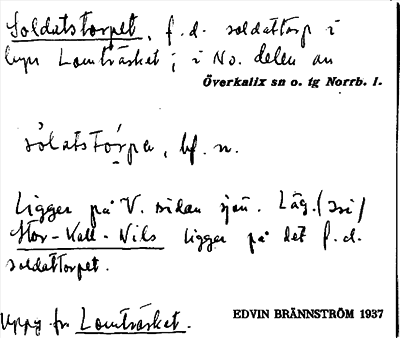 Soldatstorpet, f.d. soldattorp i
byn Lomträsket; i No. delen av
Överkalix sn o. tg Norrb. l.
sòlatstórpə, bf. n.
Ligger på V. sidan sjön. Läg.
Stor-Kall-Nils ligger på det f.d.
soldattorpet.
Uppg. fr. Lomträsket.
EDVIN BRÄNNSTRÖM 1937